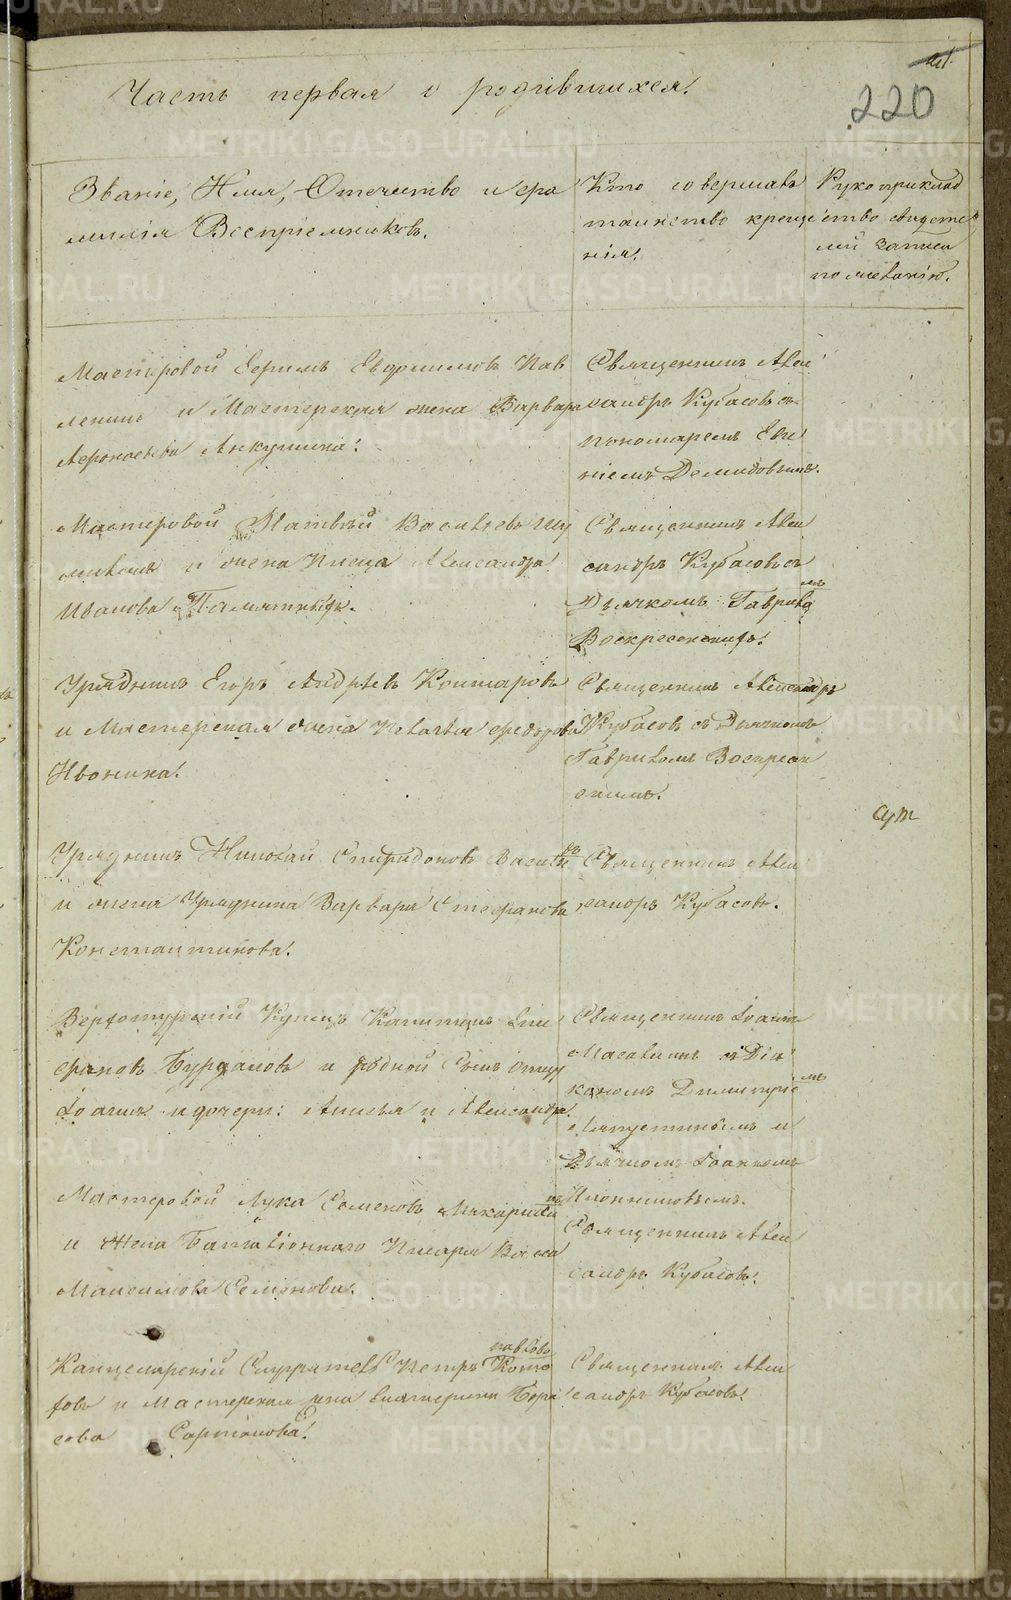 Часть первая о родившихся.
220
Званіе, Имя, Отечество и фа
милія Воспріемниковъ.
Кто совершалъ
таинство креще
нія.
Рукоприклад
ство свидете
лей записи
по желанію.
Мастеровой Ефимъ Евдокимовъ Пав
ленинъ и Мастерская жена Варвара
Афонасьева Анкушина.
Священникъ Алек
сандръ Кубасовъ съ
пономаремъ Евге
ніемъ Демидовымъ.
Мастеровой Матвѣй Васильевъ Шу
и жена писца Александра
Иванова
Священникъ Алек
сандръ Кубасовъ съ
Дьячкомъ Гавриломъ
Воскресенскимъ.
Урядникъ Егоръ Андрѣевъ Комаровъ
и Мастерская жена Наталья Федорова
Ивонина.
Священникъ Александръ
Кубасовъ съ Дьячкомъ
Гавриломъ Воскресен
скимъ.
Урядникъ Николай Спиридоновъ
и жена Урядника Варвара Стефанова
Константинова.
Священникъ Алек
сандръ Кубасовъ.
Верхотурскій Купецъ Капитонъ Епи
фановъ Бурдаковъ и родной Сынъ отцу
Іоаннъ и дочери: Анисья и Александра.
Священникъ Іоаннъ
и Діа
кономъ Димитріемъ
и
Дьячкомъ Іоанномъ
Мастеровой Лука Семеновъ
и Жена Баталіоннаго Писаря
Максимова Семенова.
Священникъ Алек
сандръ Кубасовъ.
Канцелярскій Петръ Павловъ
фовъ и Мастерская жена Екатерина Бори
сова
Священникъ Алек
сандръ Кубасовъ.
METRIKI.GASO-URAL.RU